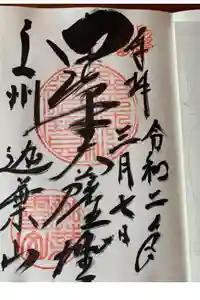 奉拝
令和二年
三月七日
中峯大薩埵
上州
迦葉山